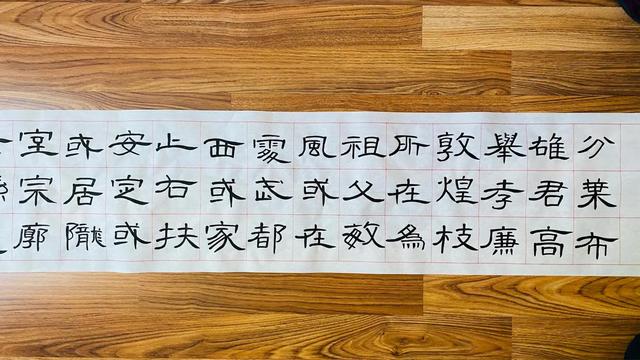 分葉布
雄君高
舉孝廉
敦煌枝
所在為
祖父敏
風或在
處武都
西或家
止右扶
安定或
或居隴
室宗廓